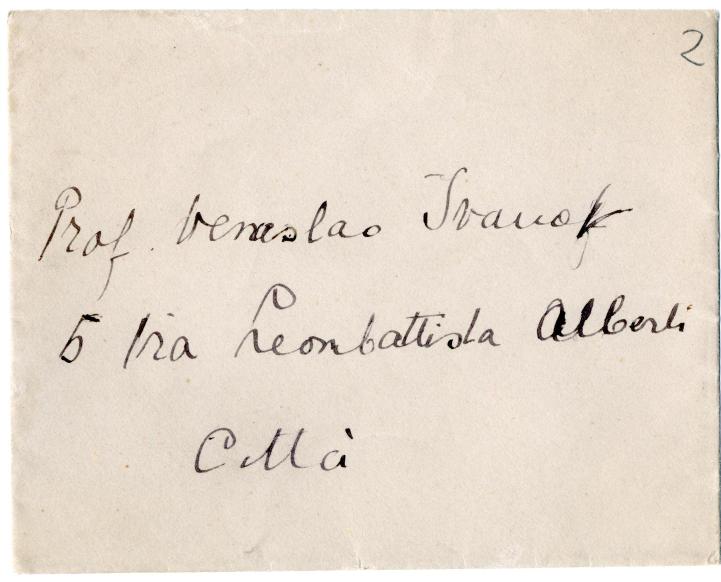 2
Prof. Venceslao Ivanof
5 Via Leonbattista Alberti
Città